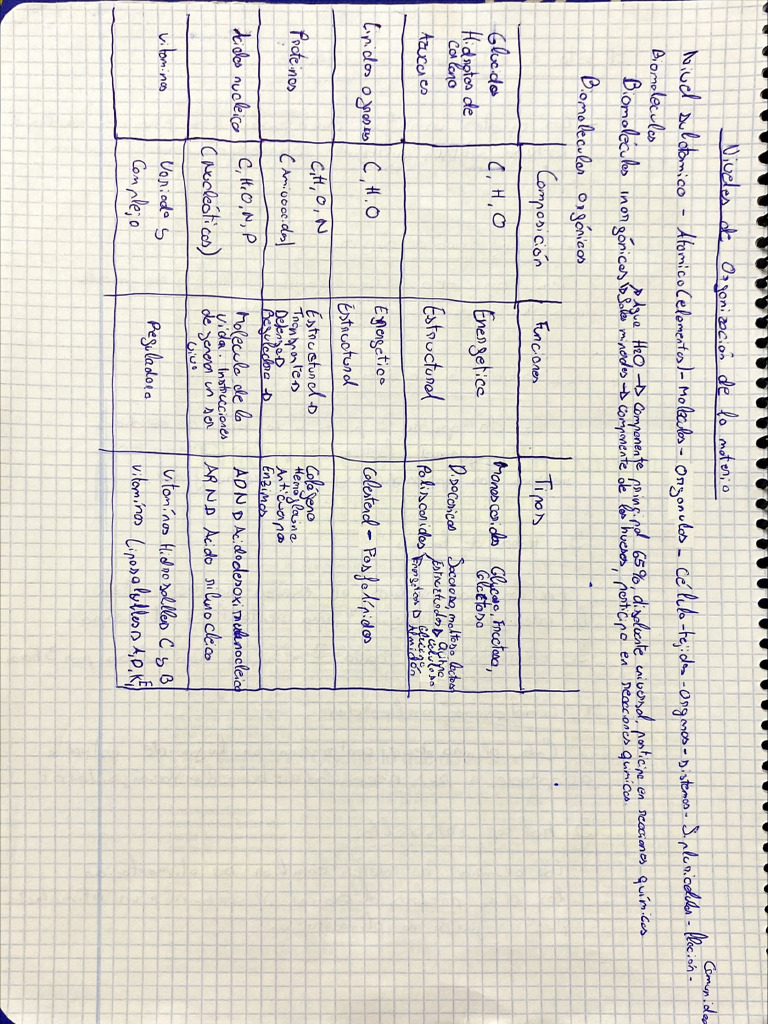 Niveles de Organización de la materia
Nivel subatómico - Atómico (elementos) - Moléculas - Orgánulos - Célula - tejidos - Órganos - Sistemas - S. pluricelular - Plación -
Comunidad
Biomoléculas
Biomoléculas inorgánicas Agua H2O → Componente principal 65%, disolvente universal, participa en reacciones químicas
Sales minerales → componente de los huesos, participa en reacciones químicas.
Biomoléculas orgánicas
Composición Funciones Tipos
Glúcidos
Hidratos de
carbono
Azúcares
C, H, O
Energética
Estructural
Monosacáridos Glucosa, Fructosa,
Galactosa
Disacáridos Sacarosa, maltosa, lactosa
Polisacáridos Estructurales → Quitina
Celulosa
Energéticos → Glucógeno
Almidón
Lípidos o grasas
C, H, O
Energética
Estructural
Colesterol - Fosfolípidos
Proteínas
C, H, O, N
(Aminoácidos)
Estructural →
Transporte →
Defensa →
Reguladora →
Colágeno
Hemoglobina
Anticuerpos
Enzimas
Ácidos nucleico
C, H, O, N, P
(Nucleóticos)
Molécula de la
vida. Instrucciones
de generar un ser
vivo
ADN → Acido desoxirribonucleico
ARN → Acido ribonucleico
Vitaminas
Variada y
Complejo
Reguladora
Vitaminas Hidrosolubles C y B
Vitaminas Liposolubles → A, D, K, E